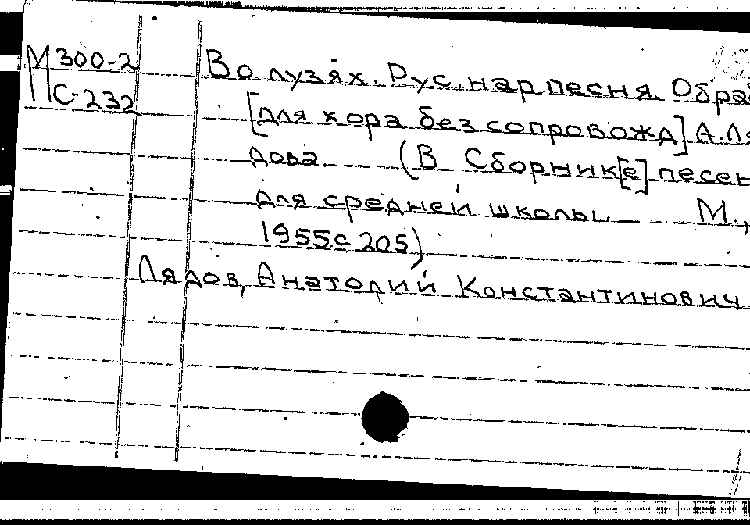 М 300-2
С-232
Во лузях. Рус. нар песня. Обра
[для хора без сопровожд] А. Ля
дова. (В Сборник[е] песен
для средней школы М.,
1955с 205)
Лядов, Анатолий Константинович